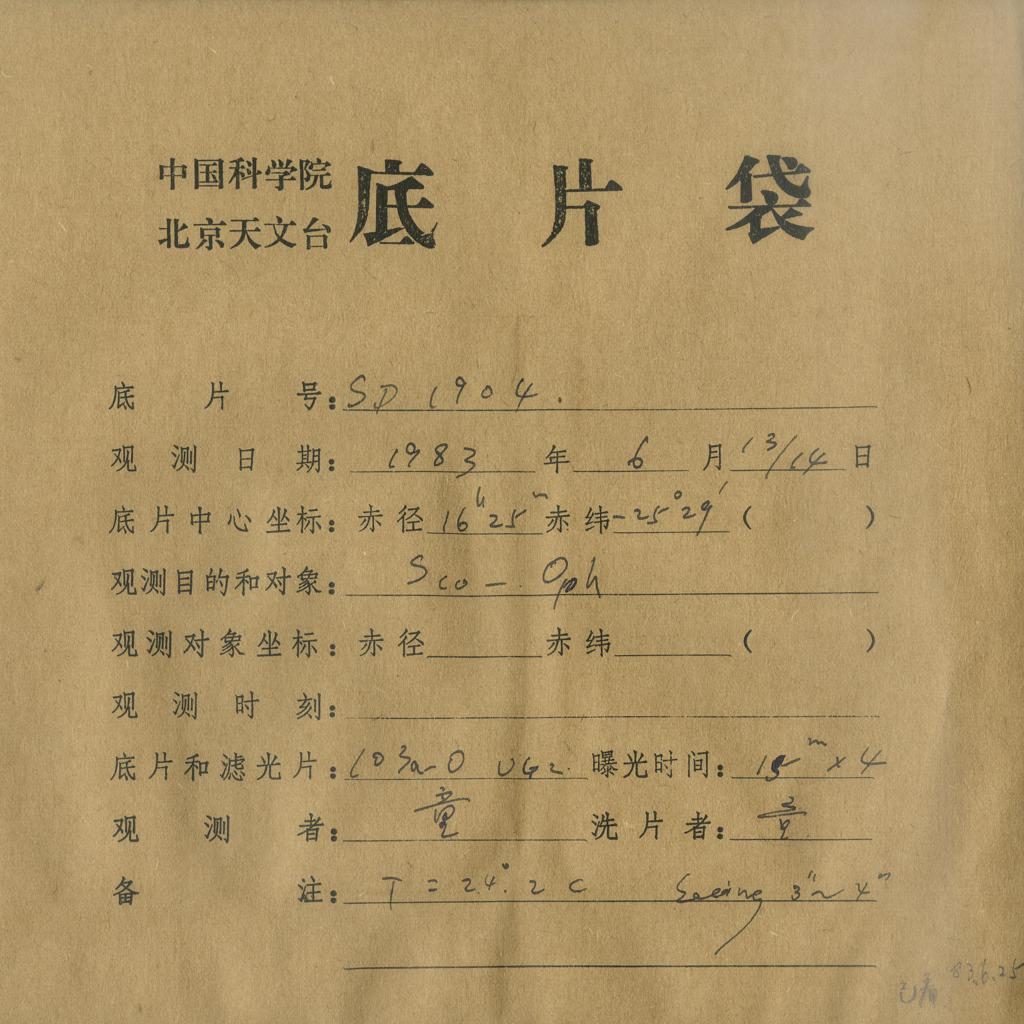 中国科学院
北京天文台
底片袋
底片号：SD 1904.
观测日期：1983年6月13/14日
底片中心坐标：赤径16ʰ25ᵐ赤纬-25°29′（ ）
观测目的和对象：Sco - Oph
观测对象坐标：赤径 赤纬 （ ）
观测时刻：
底片和滤光片：103a-O UG2 曝光时间：15ᵐ×4
观测者：童 洗片者：童
备注：T = 24°.2 C Seeing 3″~4″
已看 83.6.25